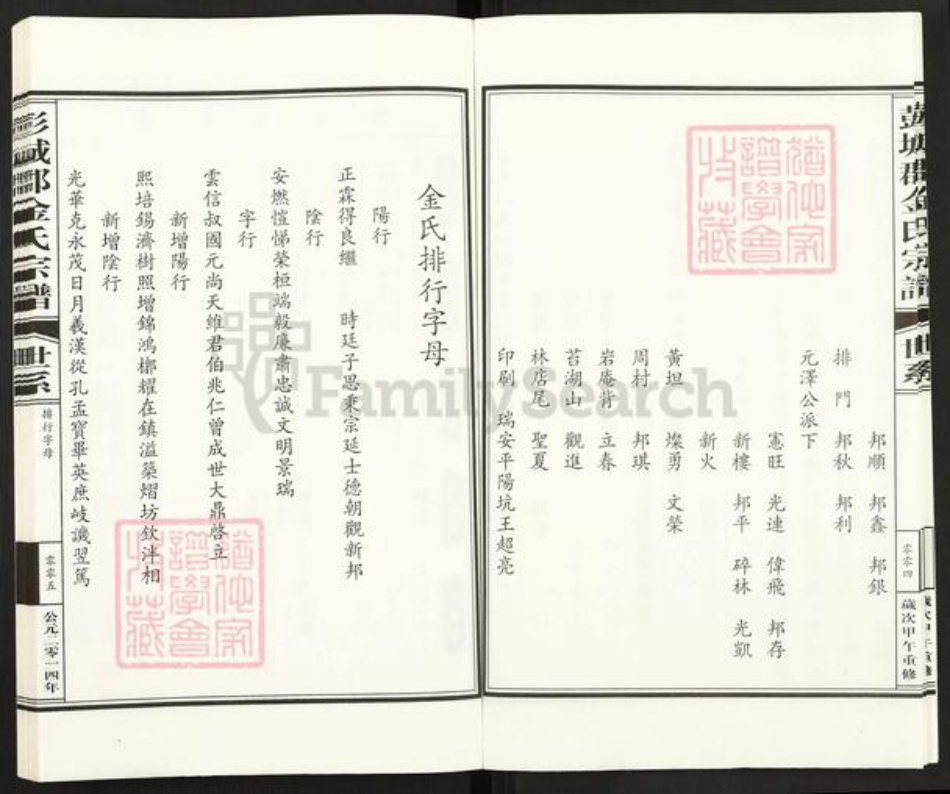 彭城郡金氏宗譜
世系
零零四
歲次甲午重修
邦順　邦鑫　邦銀
排門　邦秋　邦利
元澤公派下
憲旺　光連　偉飛　邦存
新樓　邦平　碎林　光凱
新火
黃坦　燦勇　文榮
周村　邦琪
岩庵背　立春
苔湖山　觀進
林店尾　聖夏
印刷　瑞安平陽坑王超亮
金氏排行字母
陽行
正霖得良繼　時廷子思秉宗延士德朝觀新邦
陰行
安燃愷悌榮桓端毅廉肅忠誠文明景瑞
字行
雲信叔國元尚天維君伯兆仁曾成世大鼎啓立
新增陽行
熙培錫濟樹照增錦鴻梆耀在鎮溢築熠坊欽泮相
新增陰行
光華克永茂日月義漢從孔孟寶畢英庶岐讖翌篤
彭城郡金氏宗譜
世系
排行字母
零零五
公元二零一四年
FamilySearch
猶他家
譜學會
收藏
猶他家
譜學會
收藏